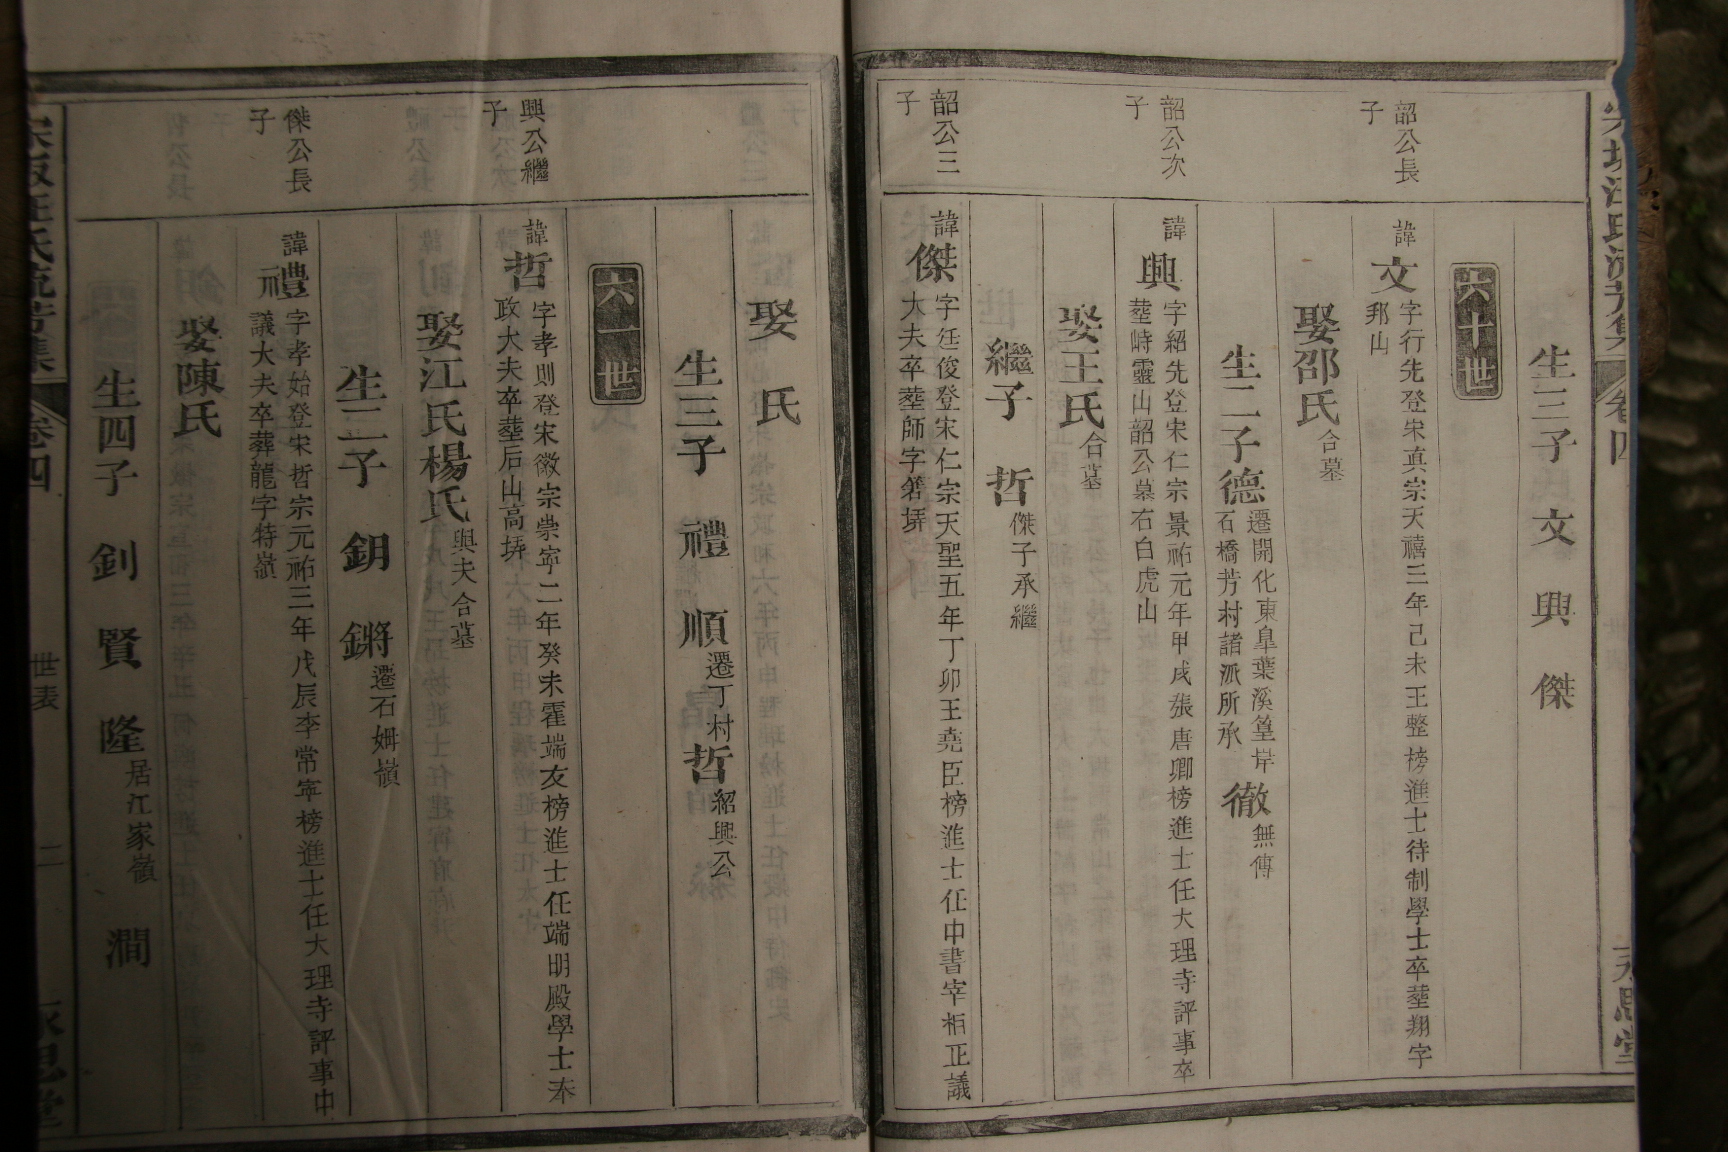 汪氏流芳集
卷四
永思堂
生三子 文 興 傑
六十世
韶公長子
諱文字行先登宋真宗天禧三年己未王整榜進士待制學士卒塟翔字
邦山
娶邵氏合墓
生二子德遷開化東皐葉溪篁岸
石橋芳村諸派所承
徹無傳
韶公次子
諱興字紹先登宋仁宗景祐元年甲戌張唐卿榜進士任大理寺評事卒
塟峙靈山韶公墓右白虎山
娶王氏合墓
繼子 哲傑子承繼
韶公三子
諱傑字廷俊登宋仁宗天聖五年丁卯王堯臣榜進士任中書宰相正議
大夫卒塟師字箬塝
娶 氏
生三子 禮 順遷丁村哲紹興公
六一世
興公繼子
諱哲字孝則登宋徽宗崇寧二年癸未霍端友榜進士任端明殿學士奉
政大夫卒塟后山高塝
娶江氏楊氏與夫合墓
生二子 鈅 鏘遷石姆嶺
傑公長子
諱禮字孝始登宋哲宗元祐三年戊辰李常寧榜進士任大理寺評事中
議大夫卒葬龍字特嶺
娶陳氏
生四子 釗 賢 隆居江家嶺 澗
汪氏流芳集
卷四
世表
二
永思堂